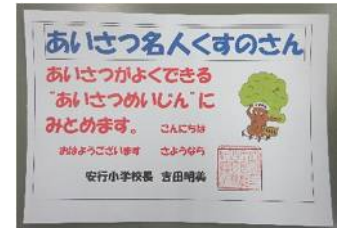 あいさつ名人くすのさん
あいさつがよくできる
"あいさつめいじん"に
みとめます。 こんにちは
おはようございます さようなら
安行小学校長 吉田明美